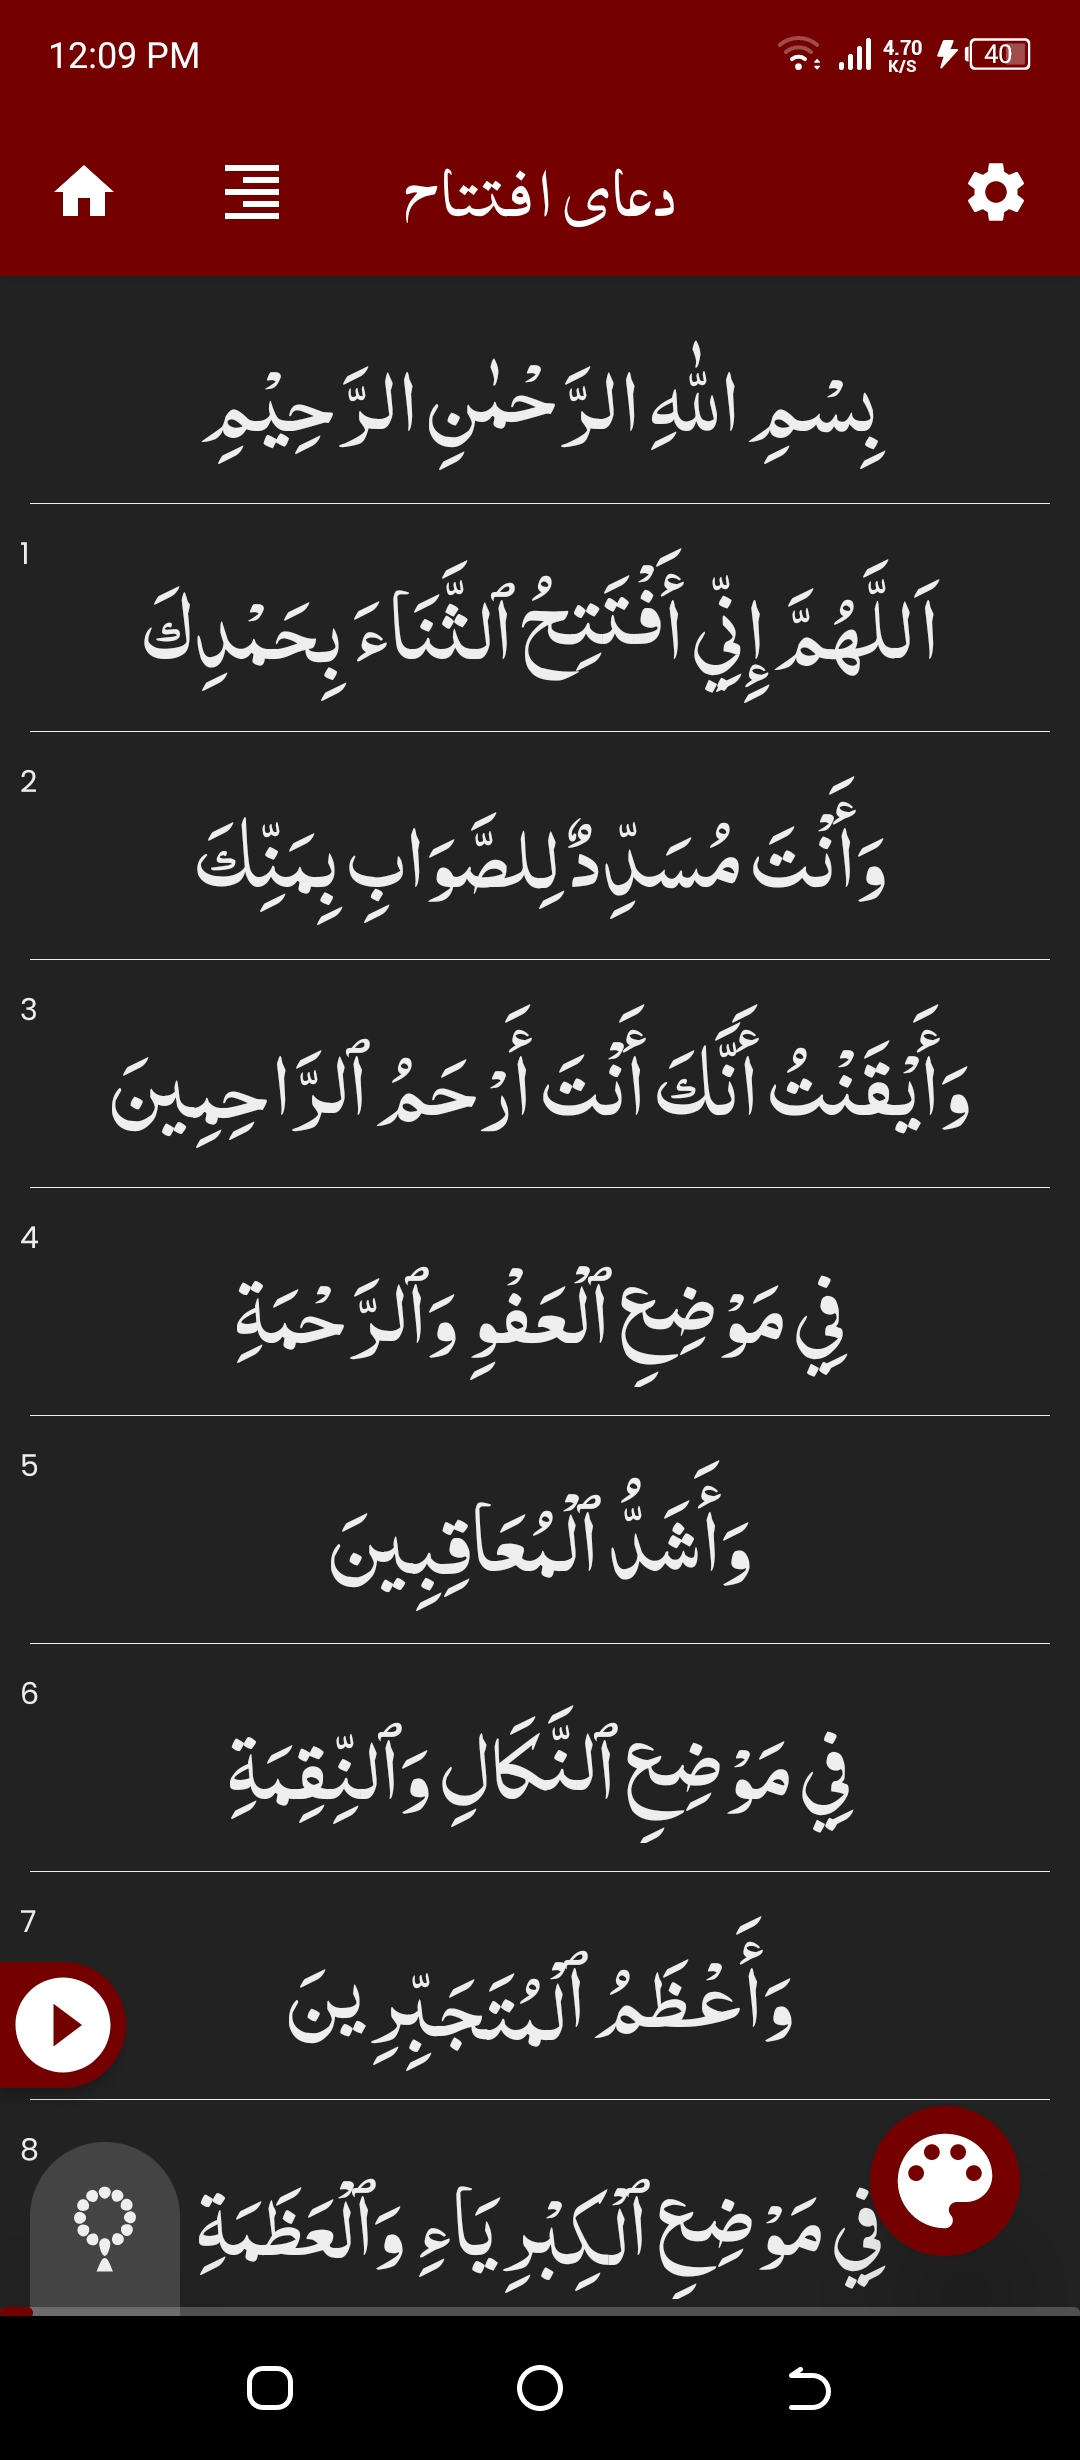 12:09 PM
4.70
K/S
40
دعای افتتاح
بِسْمِ اللّٰهِ الرَّحْمٰنِ الرَّحِيْمِ
1
اَللَّهُمَّ إِنِّي أَفْتَتِحُ ٱلثَّنَاءَ بِحَمْدِكَ
2
وَأَنْتَ مُسَدِّدٌ لِلصَّوَابِ بِمَنِّكَ
3
وَأَيْقَنْتُ أَنَّكَ أَنْتَ أَرْحَمُ ٱلرَّاحِمِينَ
4
فِي مَوْضِعِ ٱلْعَفْوِ وَٱلرَّحْمَةِ
5
وَأَشَدُّ ٱلْمُعَاقِبِينَ
6
فِي مَوْضِعِ ٱلنَّكَالِ وَٱلنِّقِمَةِ
7
وَأَعْظَمُ ٱلْمُتَجَبِّرِينَ
8
فِي مَوْضِعِ ٱلْكِبْرِيَاءِ وَٱلْعَظَمَةِ